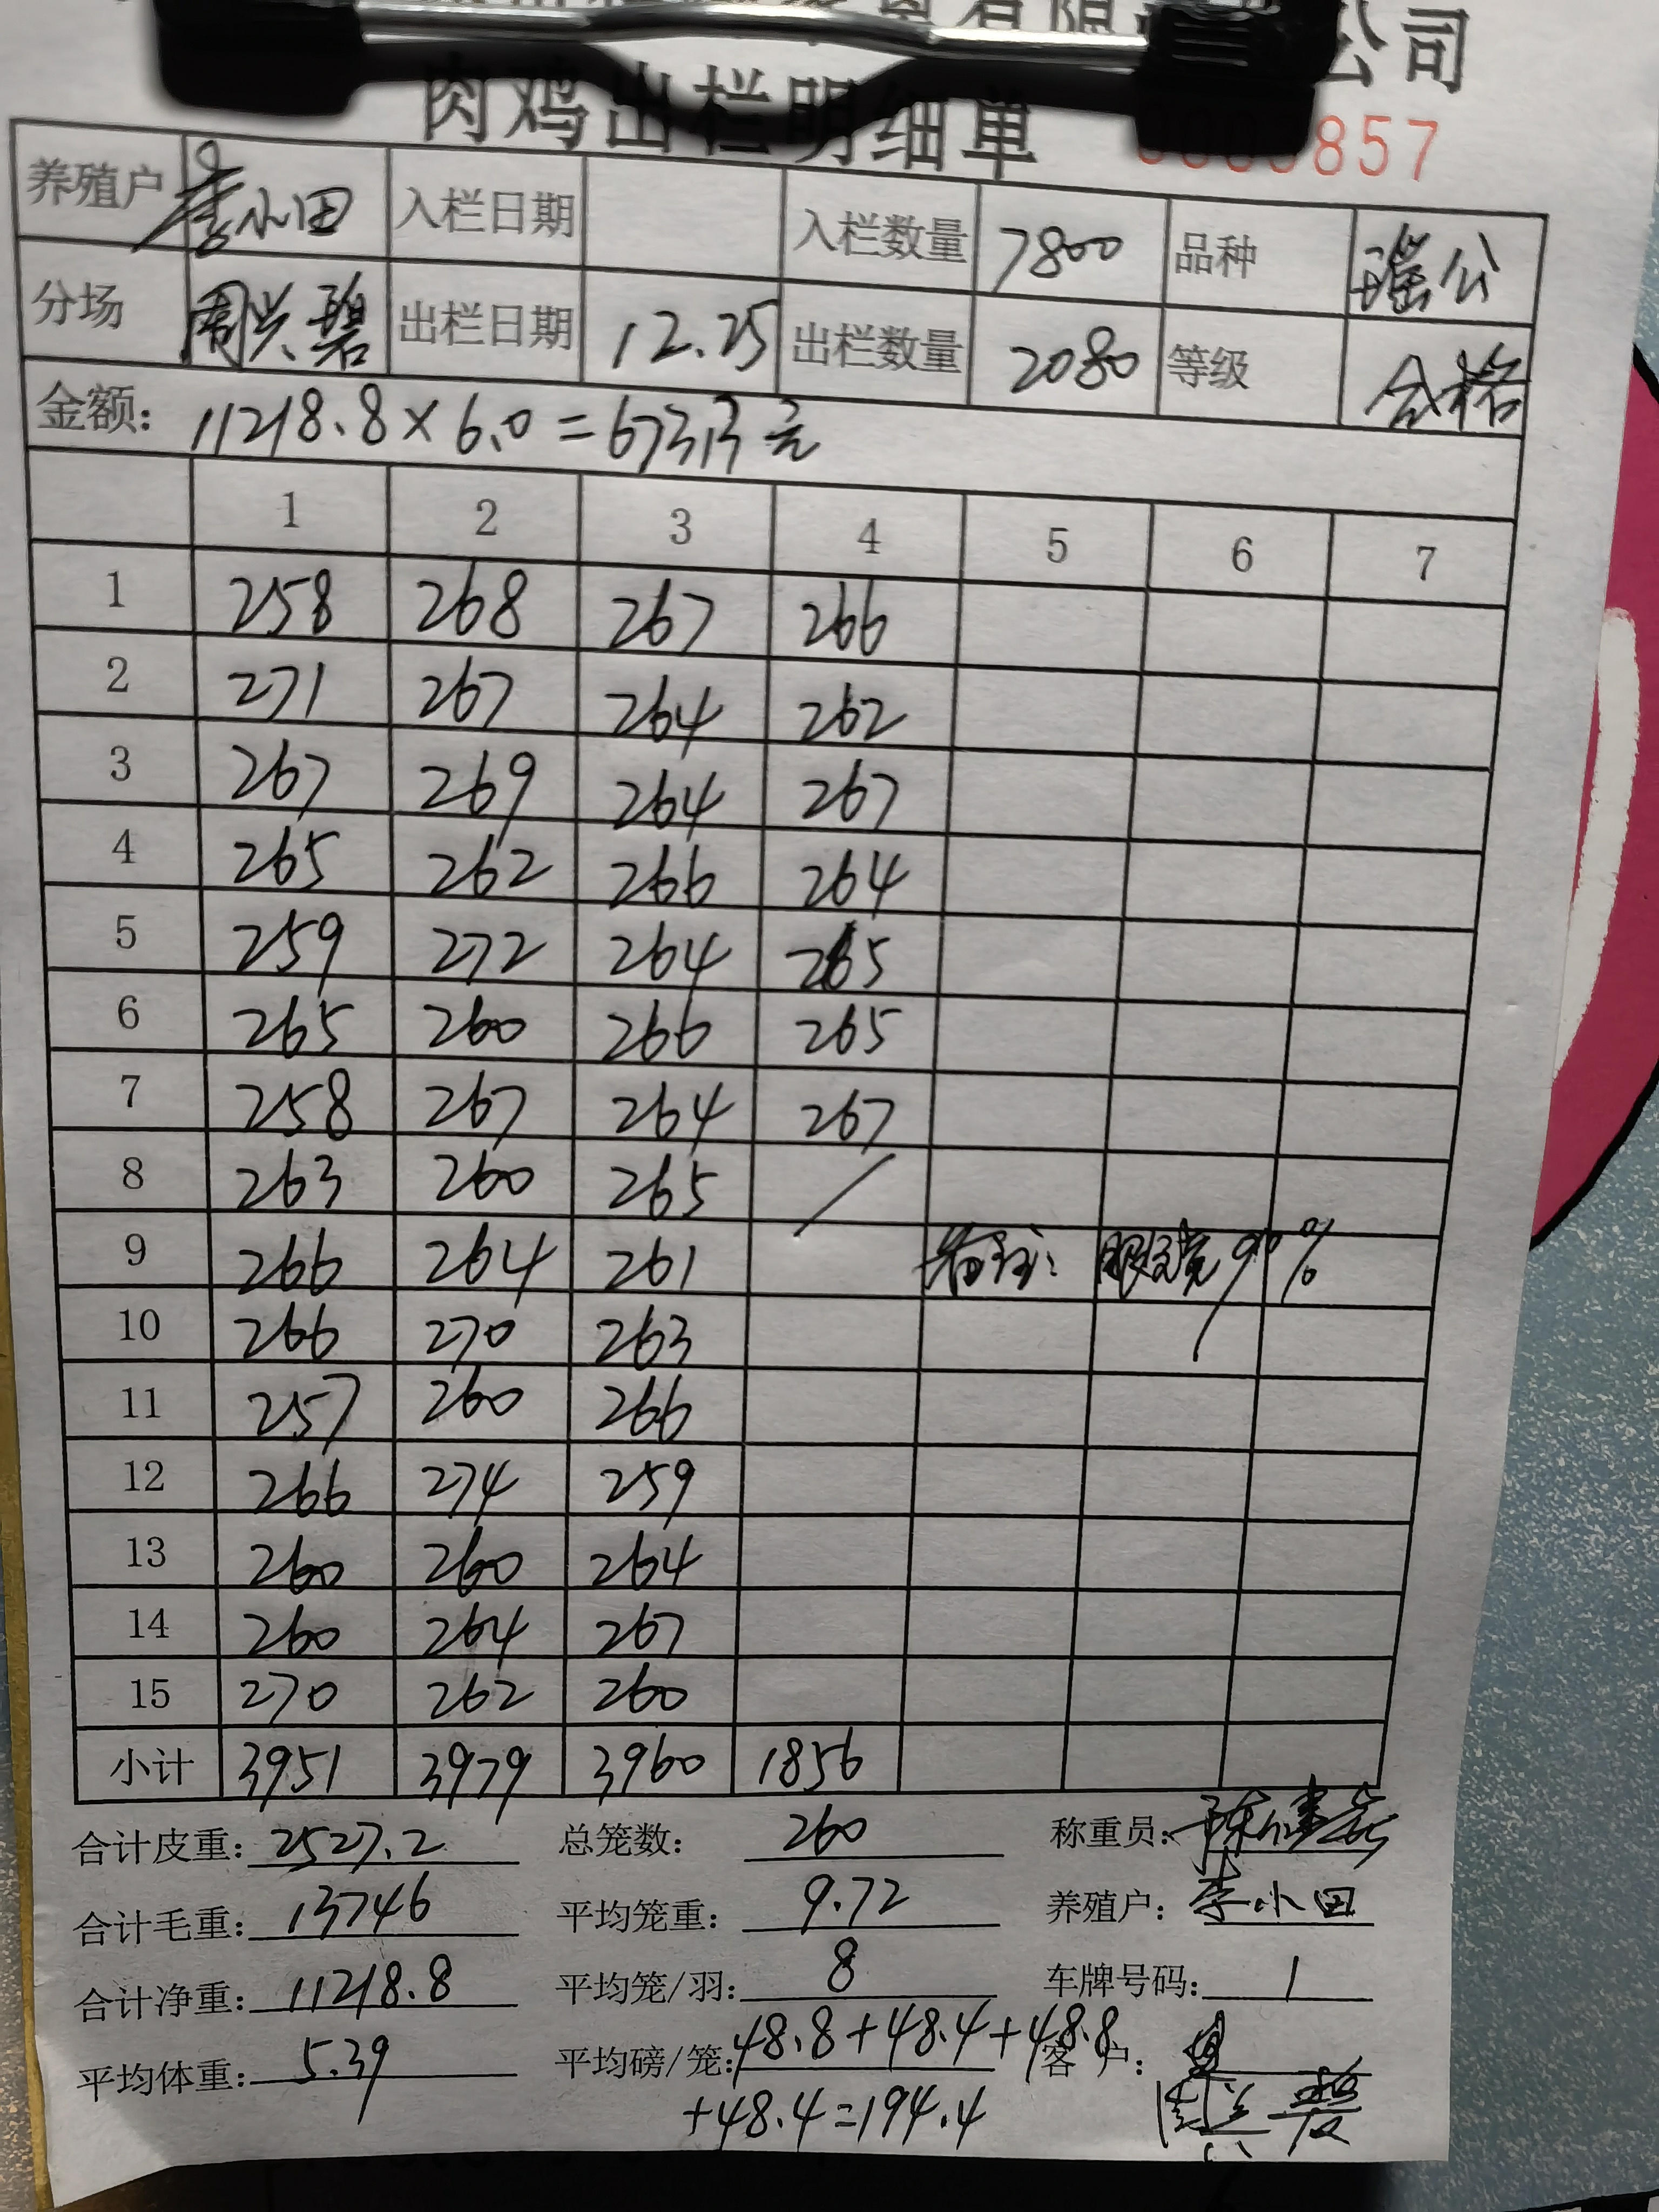 公司
肉鸡出栏明细单 857
养殖户 李小田 入栏日期 入栏数量 7800 品种 瑶公
分场 周兴碧 出栏日期 12.25 出栏数量 2080 等级 合格
金额: 11218.8×6.0=67313元
1 2 3 4 5 6 7
1 258 268 267 266
2 271 267 264 262
3 267 269 264 267
4 265 262 266 264
5 259 272 264 265
6 265 260 266 265
7 258 267 264 267
8 263 260 265 /
9 266 264 261 备注: 90%
10 266 270 263
11 257 260 266
12 266 274 259
13 260 260 264
14 260 264 267
15 270 262 260
小计 3951 3979 3960 1856
合计皮重: 2527.2 总笼数: 260 称重员:
合计毛重: 13746 平均笼重: 9.72 养殖户: 李小田
合计净重: 11218.8 平均笼/羽: 8 车牌号码: 1
平均体重: 5.39 平均磅/笼: 48.8+48.4+48.8 客户:
+48.4=194.4 周兴碧